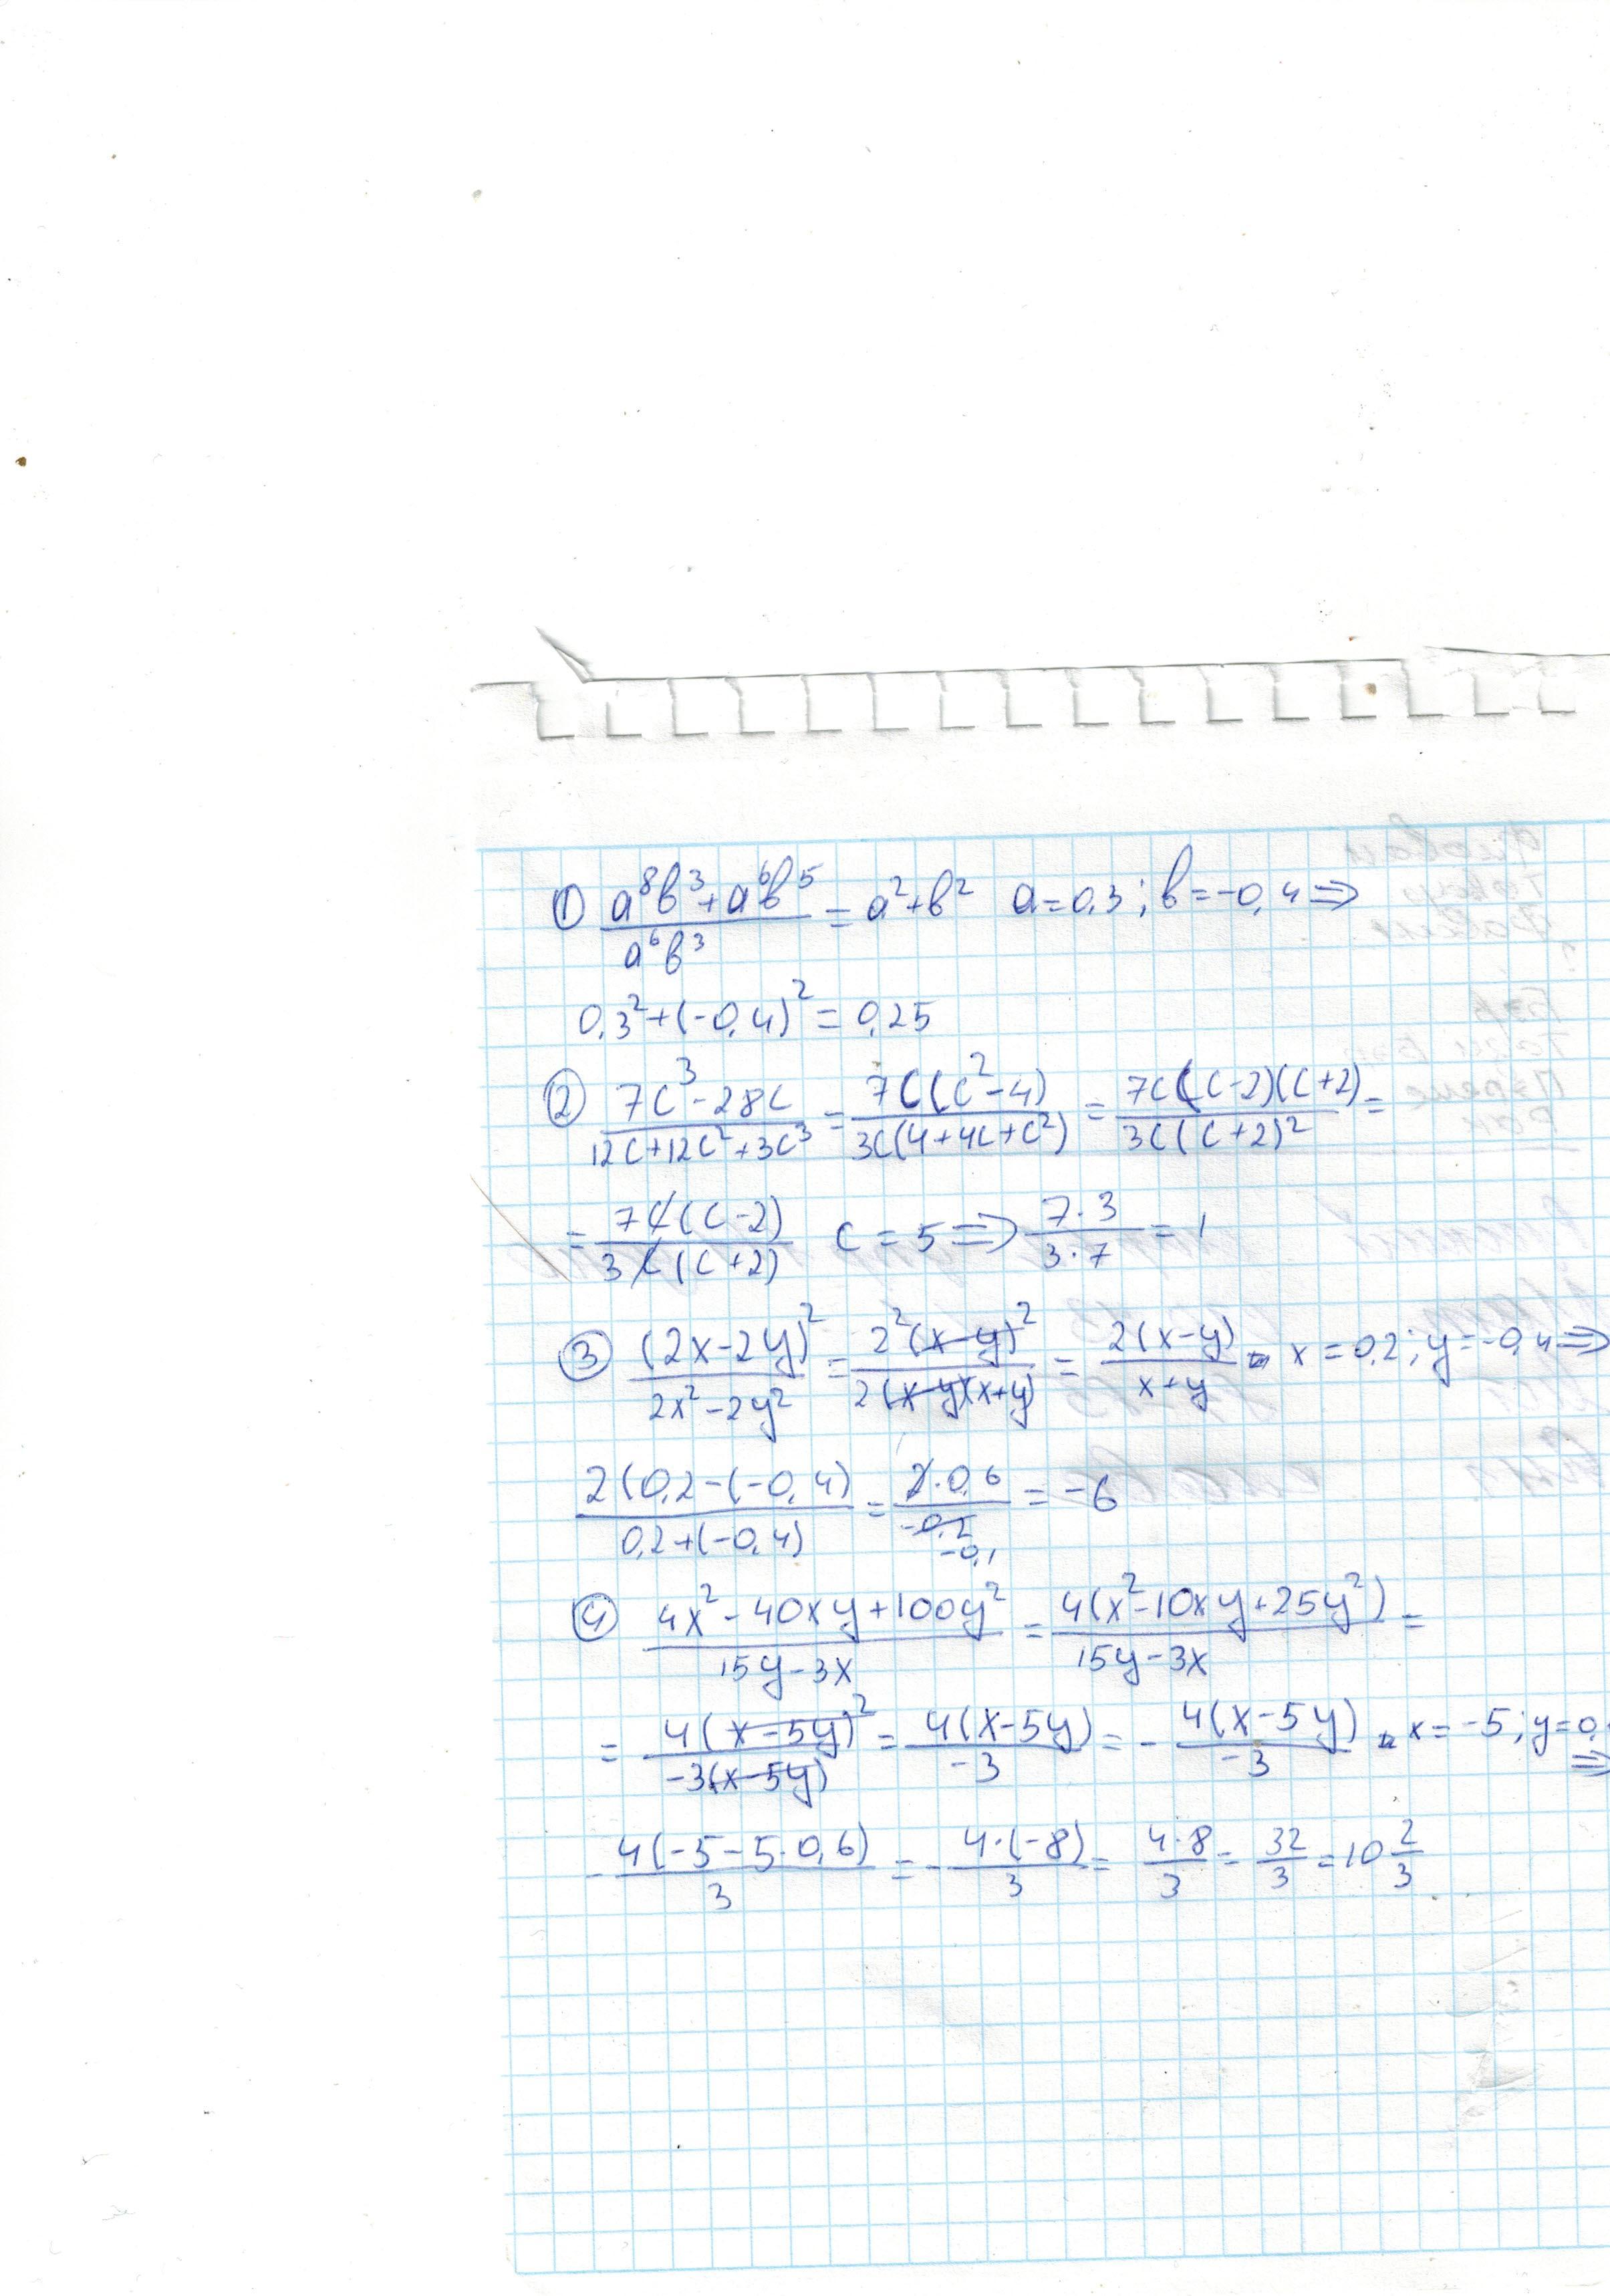 ① (a⁸b³+a⁶b⁵)/(a⁶b³) = a²+b² a=0,3; b=-0,4 ⇒
0,3²+(-0,4)² = 0,25
② (7c³-28c)/(12c+12c²+3c³) = 7c(c²-4)/3c(4+4c+c²) = 7c(c-2)(c+2)/3c(c+2)² =
= 7c(c-2)/3c(c+2) c = 5 ⇒ 7·3/3·7 = 1
③ (2x-2y)²/(2x²-2y²) = 2²(x-y)²/2(x-y)(x+y) = 2(x-y)/(x+y) x=0,2; y=-0,4 ⇒
2(0,2-(-0,4)/0,2+(-0,4) = 2·0,6/-0,2 -0,1 = -6
④ (4x²-40xy+100y²)/(15y-3x) = 4(x²-10xy+25y²)/(15y-3x) =
= 4(x-5y)²/-3(x-5y) = 4(x-5y)/-3 = - 4(x-5y)/-3 x=-5; y=0, ⇒
- 4(-5-5·0,6)/3 = - 4·(-8)/3 = 4·8/3 = 32/3 = 10 2/3